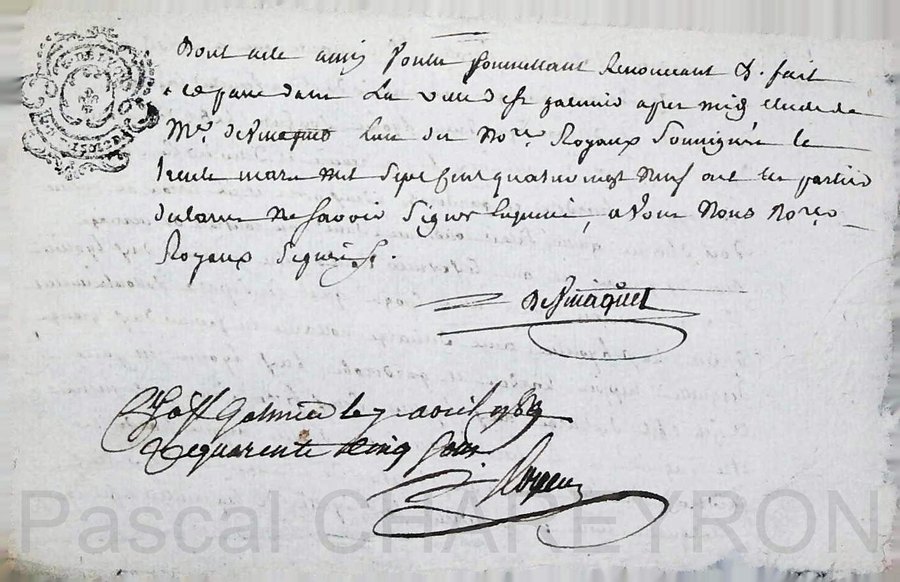 Dont acte ainsi promettant renonceant &. fait
et passé dans La ville de st galmier apres midy Etude de
Me. desmaquet L'un des Nores. Royaux soussignés le
trente mars mil sept cent quatre vingt neuf ont les parties
declarés ne savoir signer
Nous Nores
Royaux
desmaquet
Cllé a st Galmier le 7 avril 1789
R quarente cinq sous
Pascal CHAREYRON